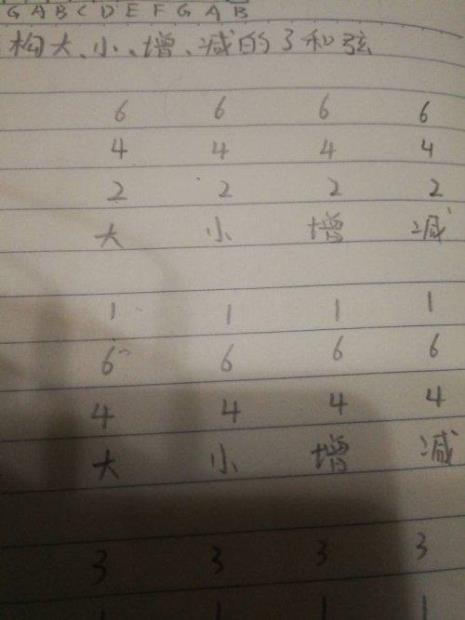 G A B C D E F G A B
构大、小、增、减的3和弦
6 6 6 6
4 4 4 4
2 2 2 2
大 小 增 减
1 1 1 1
6 6 6 6
4 4 4 4
大 小 增 减
3 3 3 3
1 1 1 1